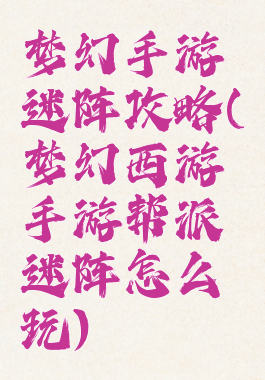 梦幻手游
迷阵攻略(
梦幻西游
手游帮派
迷阵怎么
玩)